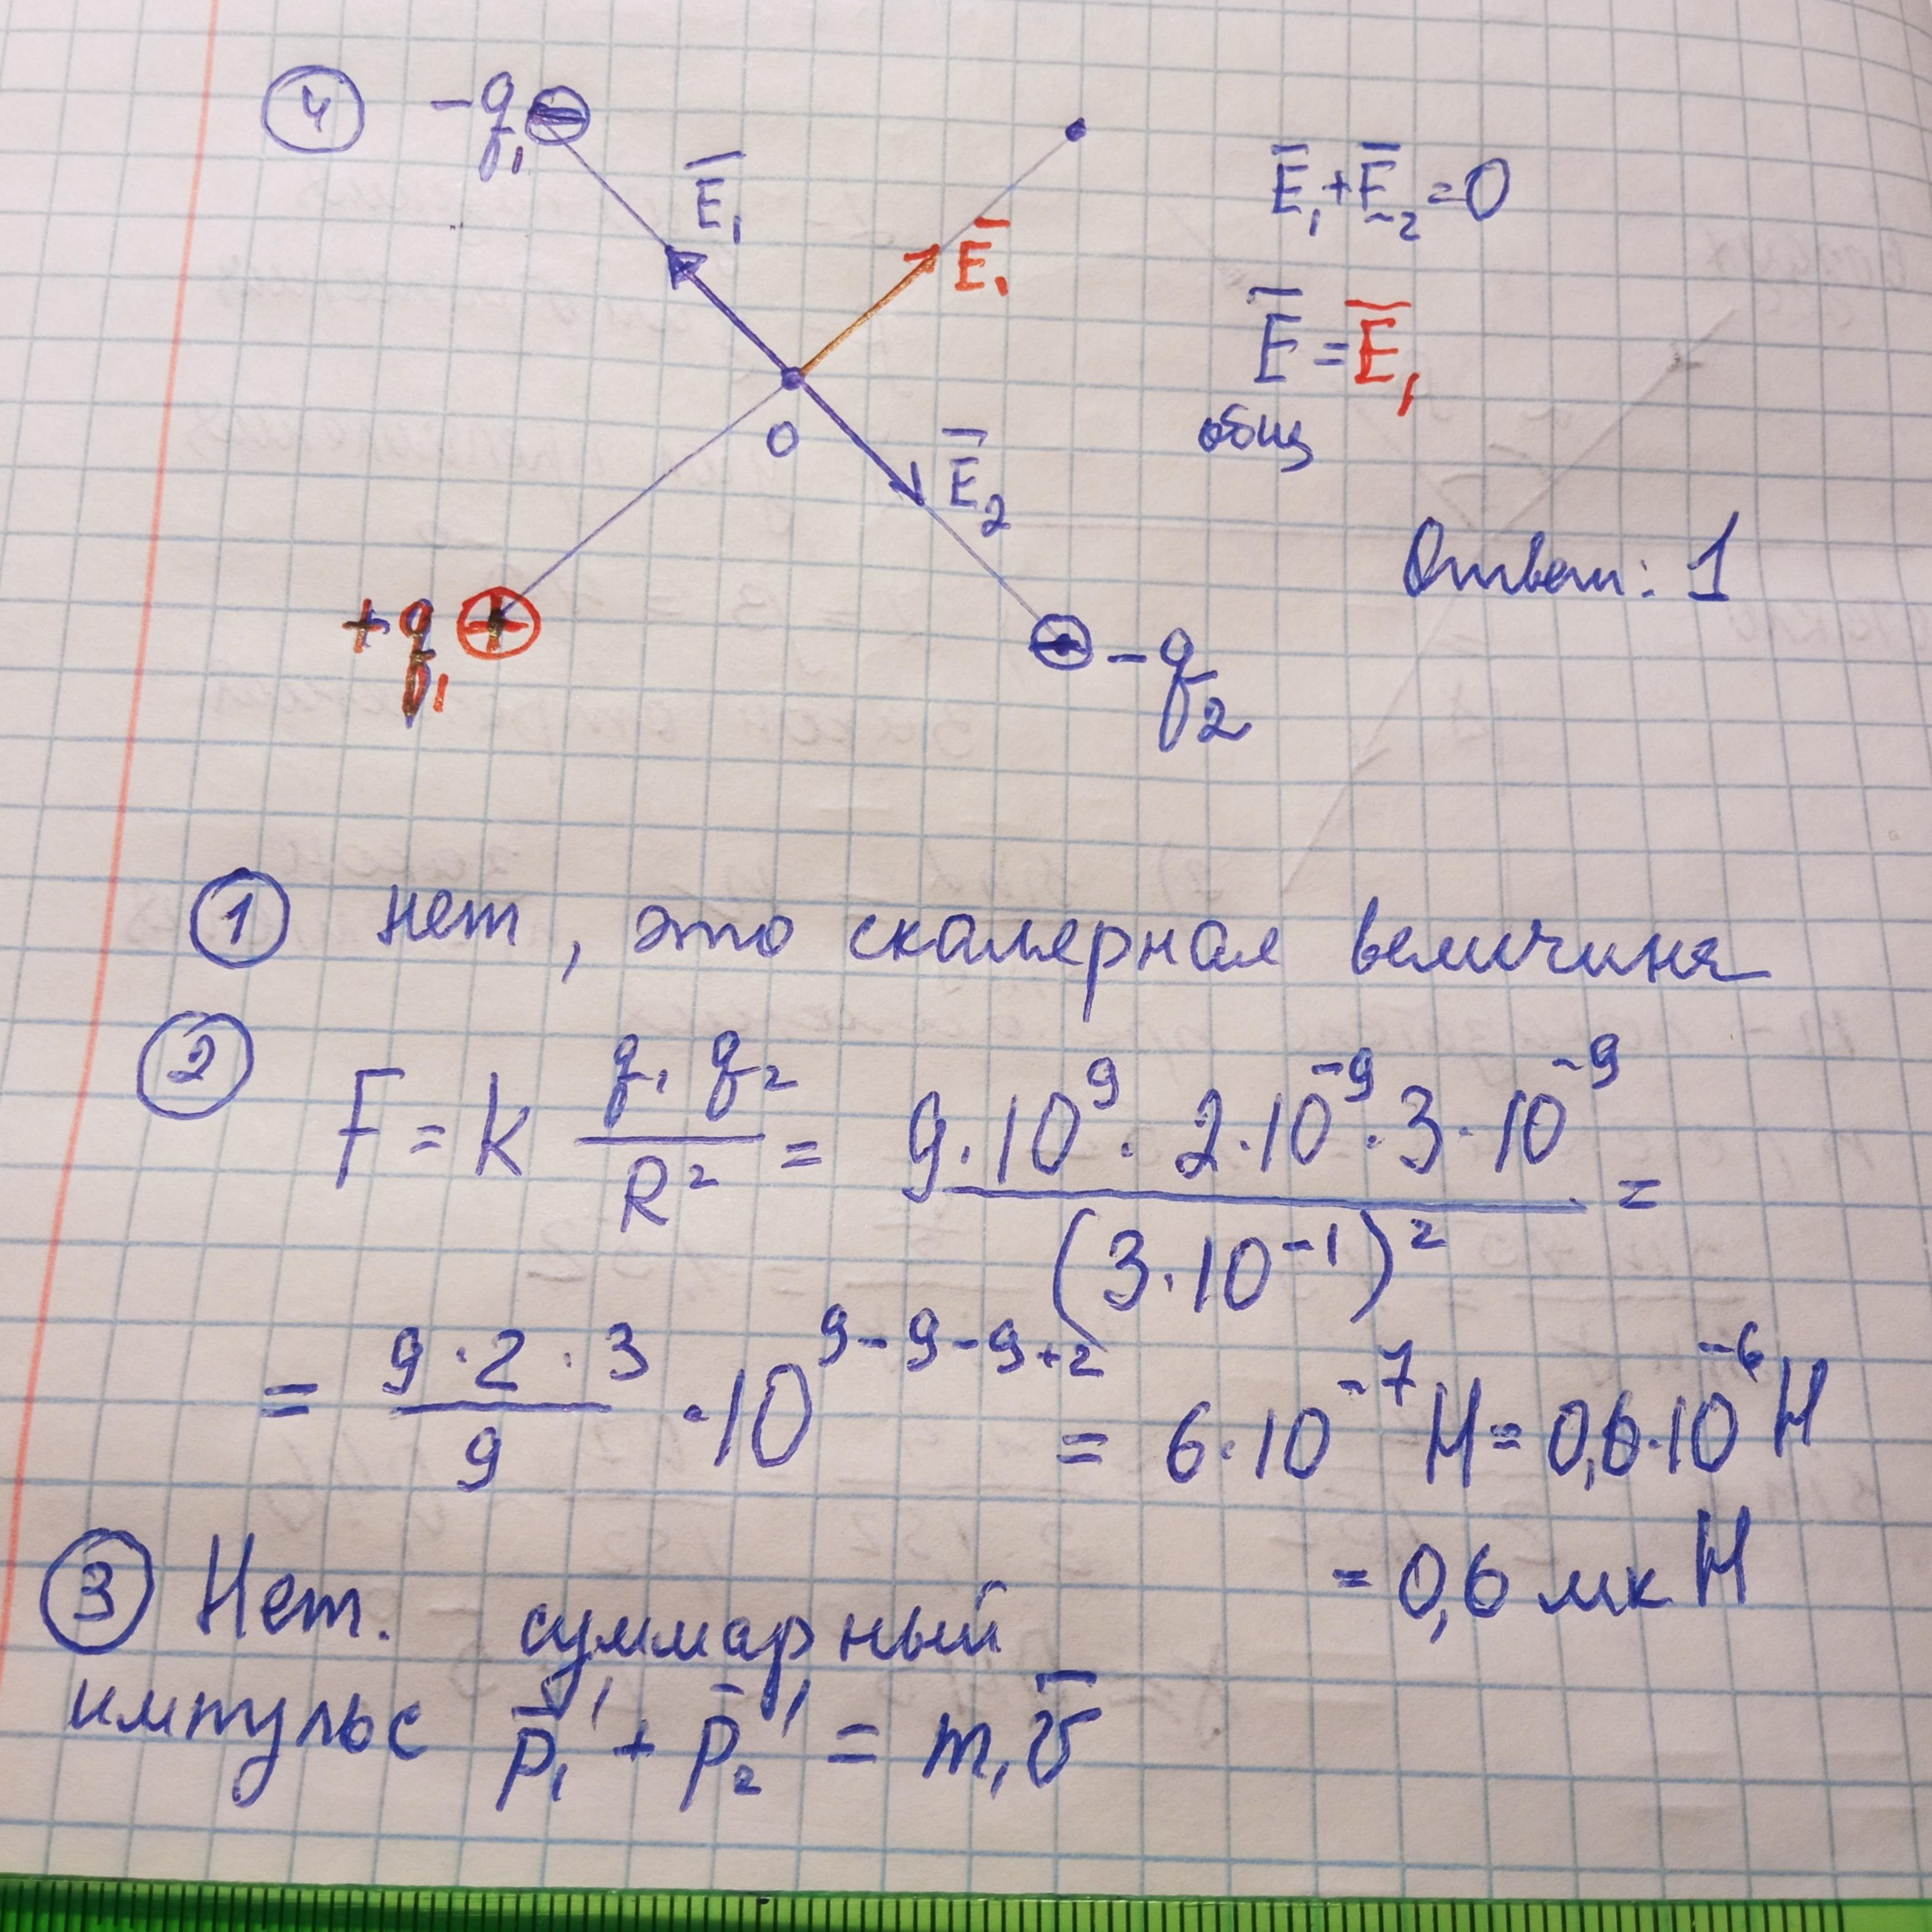 ④ -q₁ ⊖
E̅₁
E̅₁
E̅₁ + E̅₂ = 0
E̅ = E̅₁
общ
O
E̅₂
Ответ: 1
+q₁ ⊕
⊖ -q₂
① нет, это скалярная величина
② F = k q₁ q₂ / R² = 9·10⁹ · 2·10⁻⁹ · 3·10⁻⁹ / (3·10⁻¹)² =
= 9·2·3 / 9 · 10⁹⁻⁹⁻⁹⁺² = 6·10⁻⁷ Н = 0,6·10⁻⁶ Н
= 0,6 мкН
③ Нет. суммарный
импульс p̅₁' + p̅₂' = m₁v̅